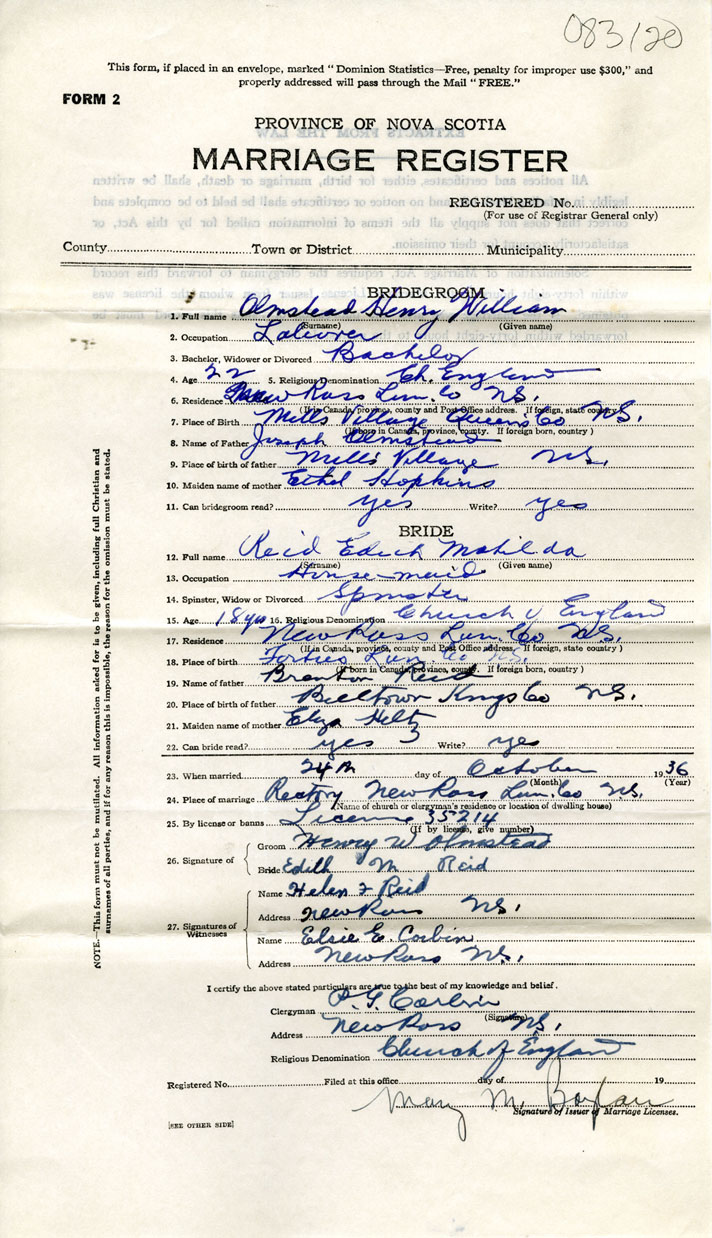 083120
This form, if placed in an envelope, marked "Dominion Statistics—Free, penalty for improper use $300," and
properly addressed will pass through the Mail "FREE."
FORM 2
PROVINCE OF NOVA SCOTIA
MARRIAGE REGISTER
REGISTERED No.
(For use of Registrar General only)
County Town or District Municipality
BRIDEGROOM
1. Full name Olmstead Henry William
(Surname) (Given name)
2. Occupation Laborer
3. Bachelor, Widower or Divorced Bachelor
4. Age 22 5. Religious Denomination Ch. England
6. Residence New Ross Lun. Co NS.
(If in Canada, province, county and Post Office address. If foreign, state country)
7. Place of Birth Mills Village Queens Co NS.
(If born in Canada, province, county. If foreign born, country)
8. Name of Father Joseph Olmstead
9. Place of birth of father Mills Village NS.
10. Maiden name of mother Ethel Hopkins
11. Can bridegroom read? yes Write? yes
BRIDE
12. Full name Reid Edith Matilda
(Surname) (Given name)
13. Occupation House-maid
14. Spinster, Widow or Divorced Spinster
15. Age 18 yrs 16. Religious Denomination Church of England
17. Residence New Ross Lun. Co NS.
(If in Canada, province, county and Post Office address. If foreign, state country)
18. Place of birth Forties Lun Co NS.
(If born in Canada, province, county. If foreign born, country)
19. Name of father Brenton Reid
20. Place of birth of father Billtown Kings Co NS.
21. Maiden name of mother Eliza Hiltz
22. Can bride read? yes Write? yes
23. When married 24th day of October 1936
(Month) (Year)
24. Place of marriage Rectory New Ross Lun. Co NS.
(Name of church or clergyman's residence or location of dwelling house)
25. By license or banns License 35214
(If by license, give number)
26. Signature of
Groom Henry W Olmstead
Bride Edith M Reid
27. Signatures of Witnesses
Name Helen F Reid
Address New Ross NS.
Name Elsie E. Corbin
Address New Ross NS.
I certify the above stated particulars are true to the best of my knowledge and belief.
Clergyman P. G. Corbin
(Signature)
Address New Ross NS.
Religious Denomination Church of England
Registered No. Filed at this office day of 19
Mary M.
Signature of Issuer of Marriage Licenses.
[SEE OTHER SIDE]
NOTE.—This form must not be mutilated. All information asked for is to be given, including full Christian and
surnames of all parties, and if for any reason this is impossible, the reason for the omission must be stated.